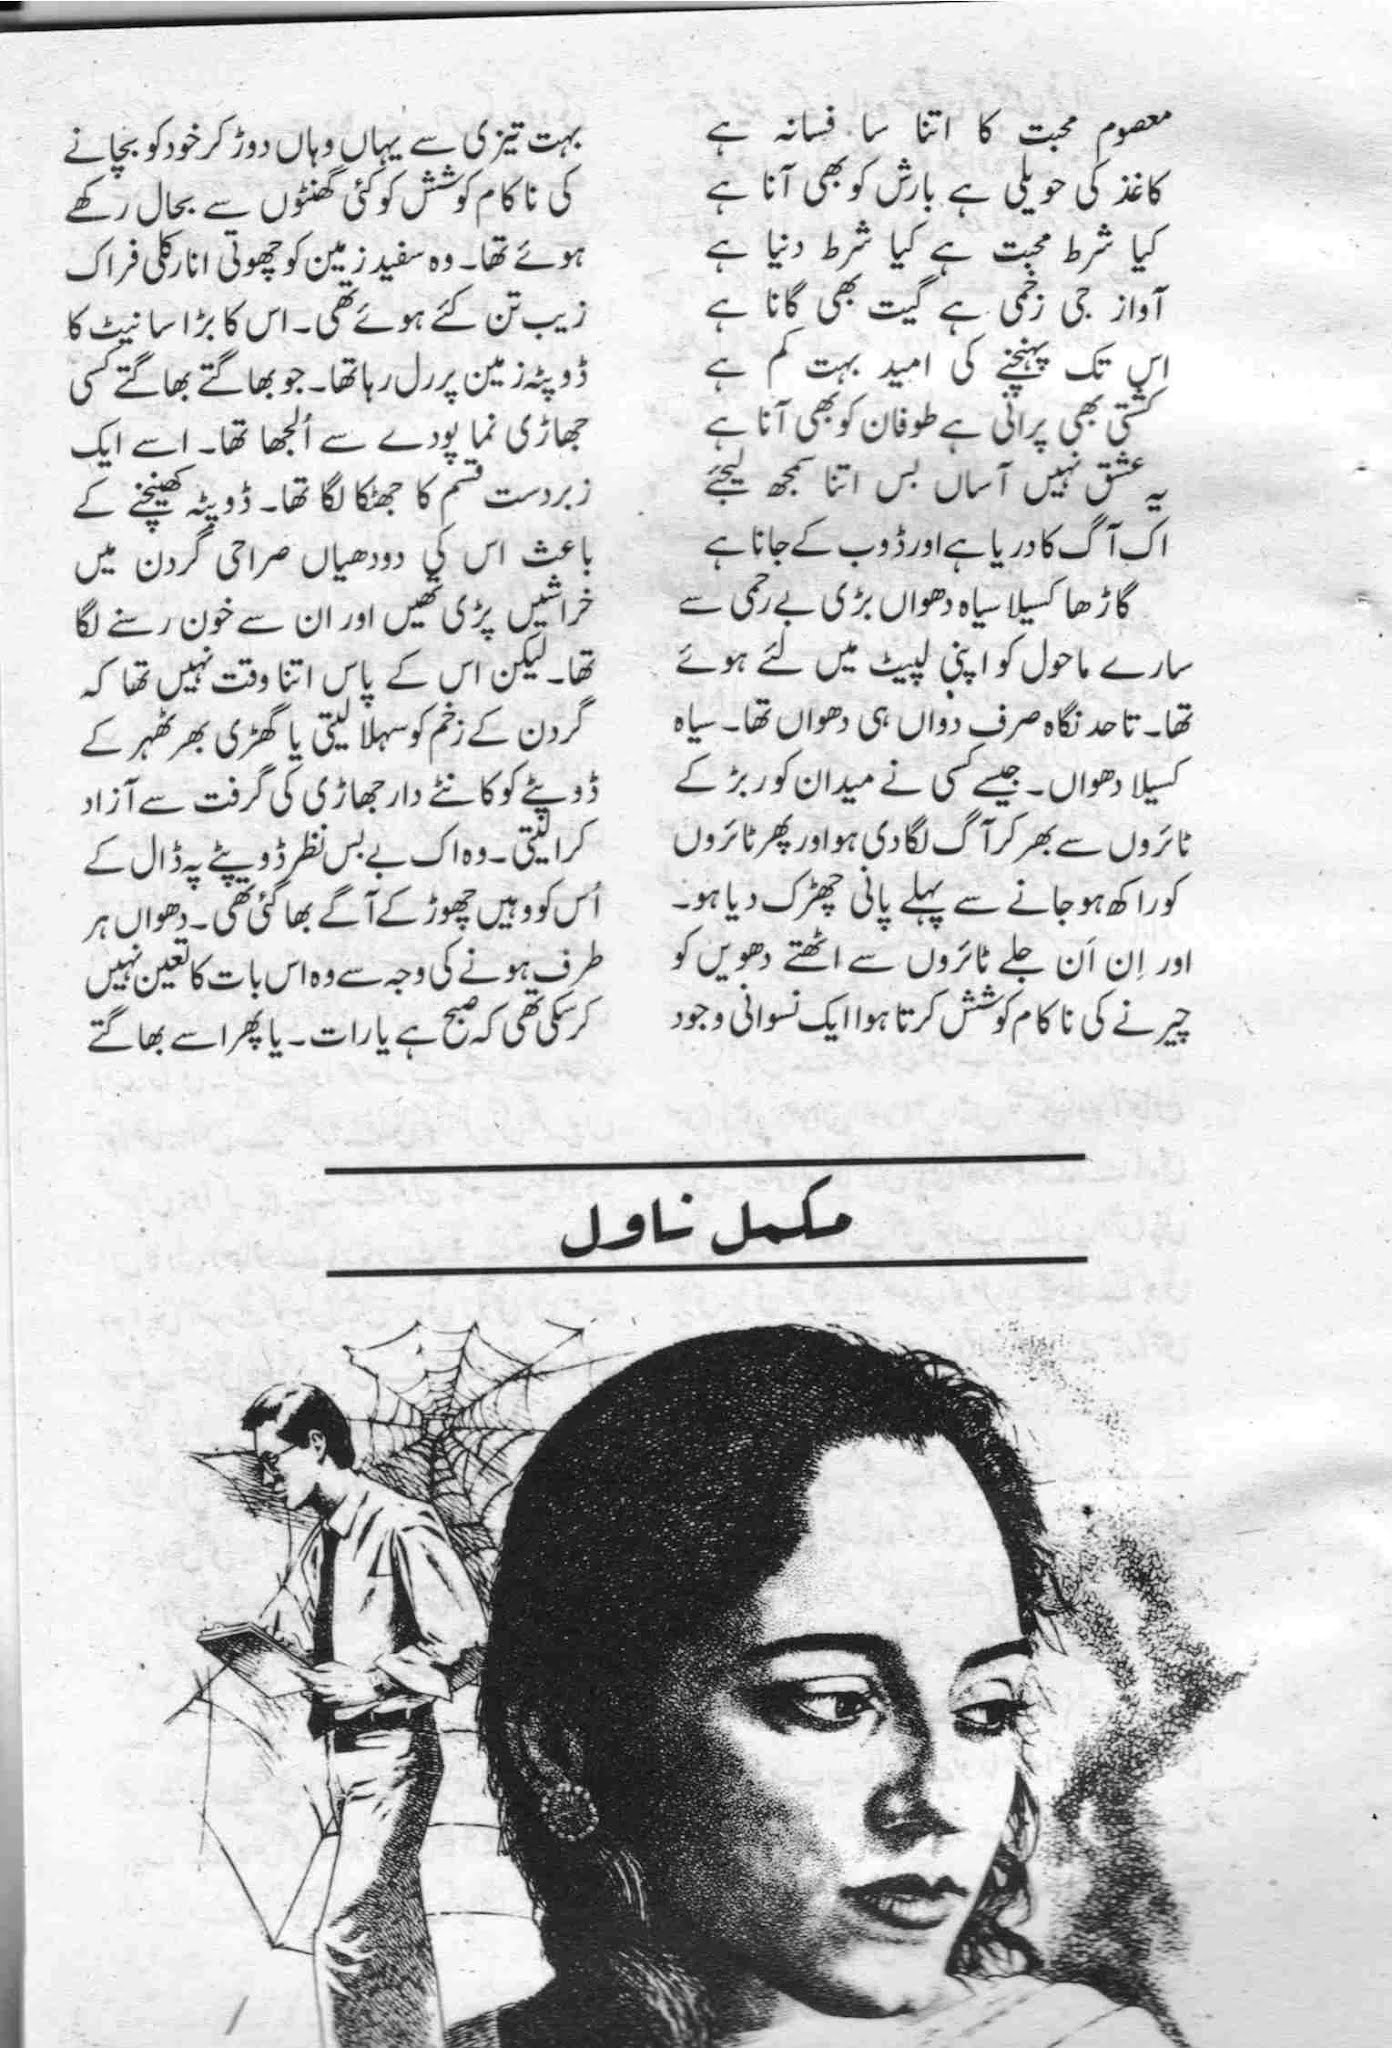 معصوم محبت کا اتنا سا فسانہ ہے
کاغذ کی حویلی ہے بارش کو بھی آنا ہے
کیا شرط محبت ہے کیا شرط دنیا ہے
آواز جی زخمی ہے گیت بھی گانا ہے
اس تک پہنچنے کی امید بہت کم ہے
کشتی بھی پرانی ہے طوفان کو بھی آنا ہے
یہ عشق نہیں آساں بس اتنا سمجھ لیجئے
اک آگ کا دریا ہے اور ڈوب کے جانا ہے
گاڑھا کسیلا سیاہ دھواں بڑی بے رحمی سے
سارے ماحول کو اپنی لپیٹ میں لئے ہوئے
تھا۔ تاحد نگاہ صرف دواں ہی دھواں تھا۔ سیاہ
کسیلا دھواں۔ جیسے کسی نے میدان کو ربڑ کے
ٹائروں سے بھر کر آگ لگا دی ہو اور پھر ٹائروں
کو راکھ ہو جانے سے پہلے پانی چھڑک دیا ہو۔
اور اِن اَن جلے ٹائروں سے اٹھتے دھویں کو
چیرنے کی ناکام کوشش کرتا ہوا ایک نسوانی وجود
بہت تیزی سے یہاں وہاں دوڑ کر خود کو بچانے
کی ناکام کوشش کو کئی گھنٹوں سے بحال رکھے
ہوئے تھا۔ وہ سفید زمین کو چھوتی انارکلی فراک
زیب تن کئے ہوئے تھی۔ اس کا بڑا سا نیٹ کا
ڈوپٹہ زمین پر رل رہا تھا۔ جو بھاگتے بھاگتے کسی
جھاڑی نما پودے سے اُلجھا تھا۔ اسے ایک
زبردست قسم کا جھٹکا لگا تھا۔ ڈوپٹہ کھینچنے کے
باعث اس کی دودھیاں صراحی گردن میں
خراشیں پڑی تھیں اور ان سے خون رسنے لگا
تھا۔ لیکن اس کے پاس اتنا وقت نہیں تھا کہ
گردن کے زخم کو سہلا لیتی یا گھڑی بھر ٹھہر کے
ڈوپٹے کو کانٹے دار جھاڑی کی گرفت سے آزاد
کرا لیتی۔ وہ اک بے بس نظر ڈوپٹے پہ ڈال کے
اُس کو وہیں چھوڑ کے آگے بھاگ گئی تھی۔ دھواں ہر
طرف ہونے کی وجہ سے وہ اس بات کا تعین نہیں
کر سکی تھی کہ صبح ہے یا رات۔ یا پھر اسے بھاگتے
مکمل ناول